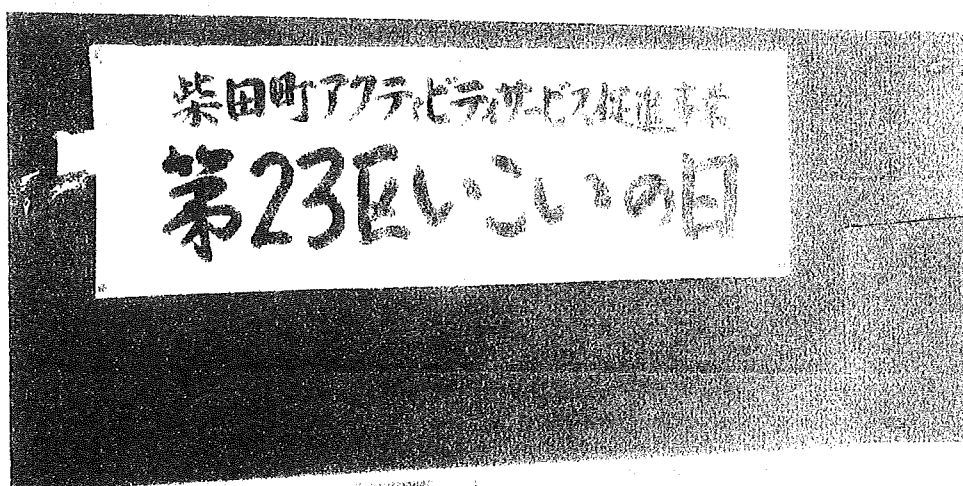 柴田町アクティビティサービス促進事業
第23区いこいの日